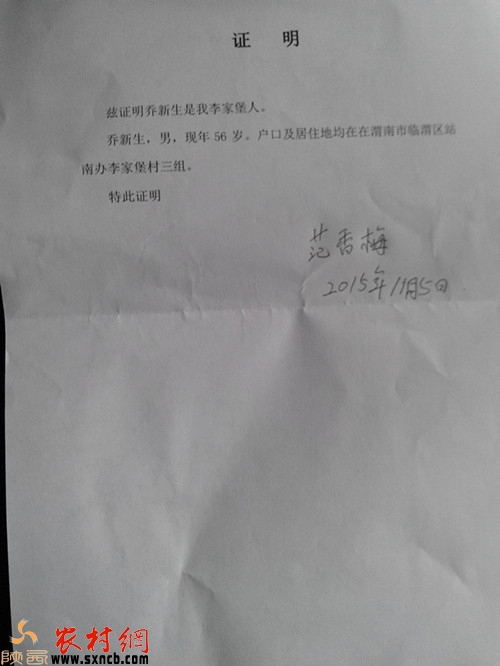 证 明
兹证明乔新生是我李家堡人。
乔新生，男，现年 56 岁。户口及居住地均在在渭南市临渭区站
南办李家堡村三组。
特此证明
范香梅
2015年11月5日
陕西 农村網
www.sxncb.com